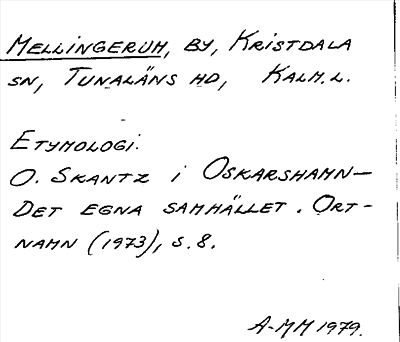 MELLINGERUM, BY, KRISTDALA
SN, TUNALÄNS HD, KALM. L.
ETYMOLOGI.
O. SKANTZ i OSKARSHAMN—
DET EGNA SAMHÄLLET. ORT-
NAMN (1973), S. 8.
A-MM 1979.